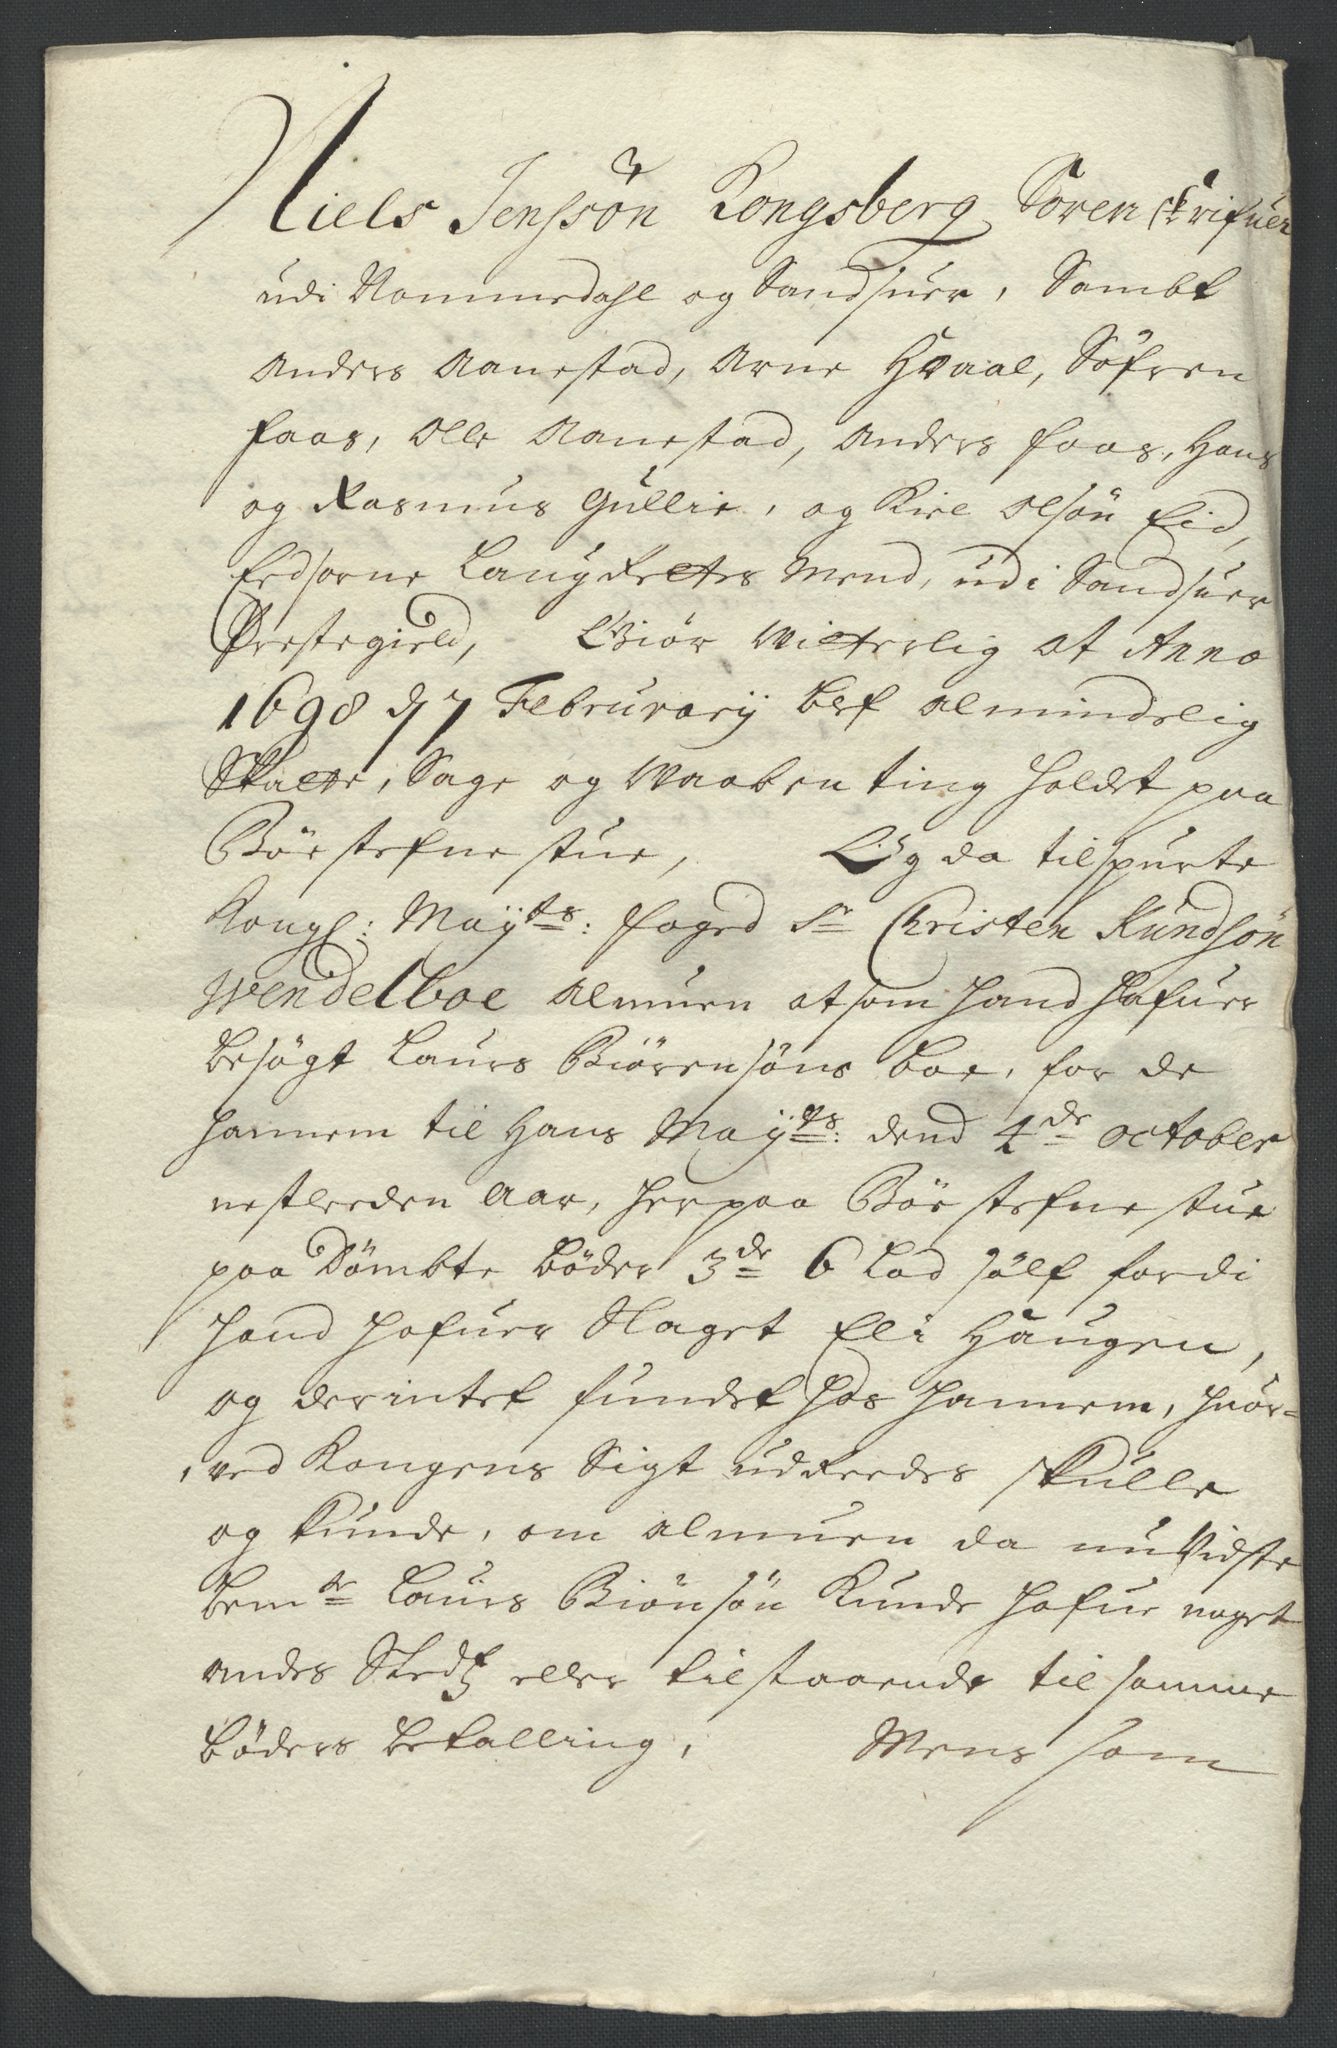 Niels Jenssön Kongsberg Soren skrifuer
udi Nommedahl og Sandsuer, Sambt
Anders Aanestad, Arne Hvaal, Söfren
Faas, Olle Aanestad, Anders Faas, Hans
og Rasmus Gullie, og Kiel Olsön Eid,
Eedsorne Laug Rettes Mend, udi Sandsuer
Præstegield, Giör Witterlig at Anno
1698 d 7 Februrarij blef almindelig
Skatte, Sage og Waaben ting holdet paa
Böe stefne stue, Og da tilspurte
Kongl: Maÿts: foged Sr Christen Knudsön
Wendelboe Almuen at som hand hafuer
besögt Laurs Biörensöns boe, for de
hannem til Hans Maÿts: dend 4de october
nestleeden Aar, her paa Böe stefne stue
paa Dömbte böder 3de 6 Lod sölf fordi
hand hafuer Slaget Eli Haugen,
og der intet fundet hos hannem, huor-
ved Kongens Sigt udreedes skulle
og kunde, om almuen da nu Vidste
bemte Laurs Biönsön Kunde hafue noget
andes Stedtz eller tilstaaende til samme
böders betalling, Mens som